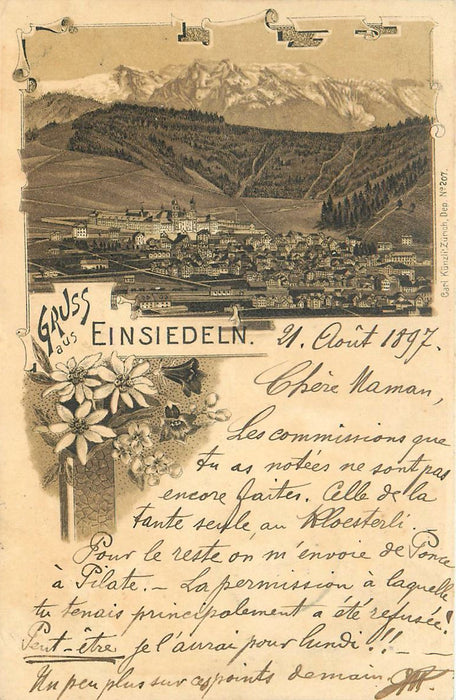 Carl Künzli, Zürich, Dep. Nº 207.
GRUSS
aus
EINSIEDELN.
21. Août 1897.
Chère Maman,
Les commissions que
tu as notées ne sont pas
encore faites. Celle de la
tante seule, au Kloesterli.
Pour le reste on m'envoie de Ponce
à Pilate. – La permission à laquelle
tu tenais principalement a été refusée!
Peut-être je l'aurai pour lundi!! – –
Un peu plus sur ces points demain.